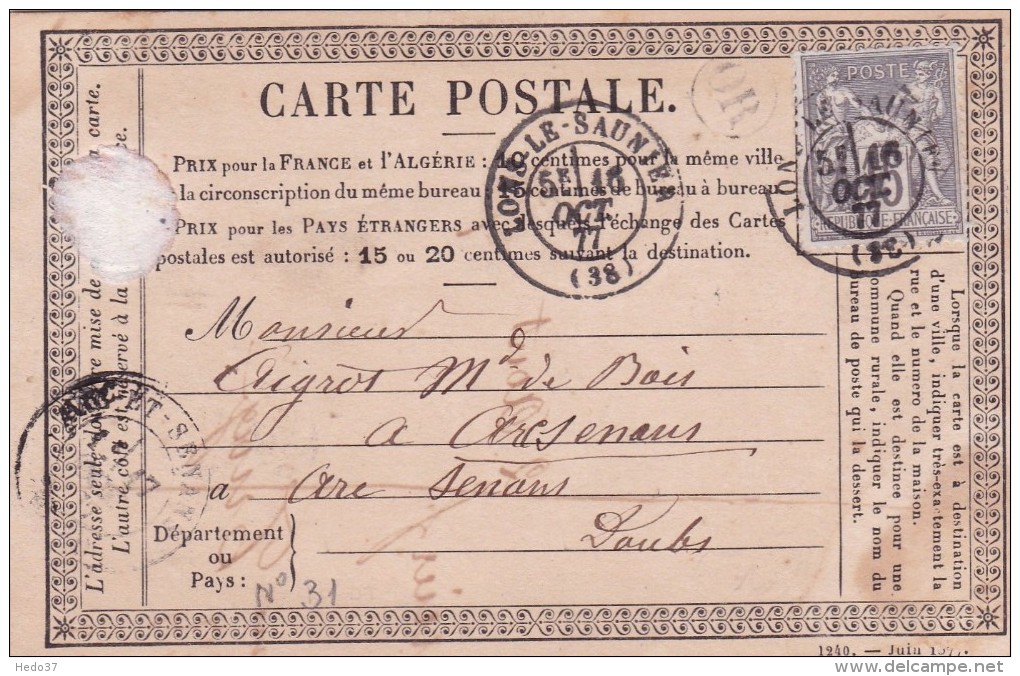 CARTE POSTALE.
OR
POSTE
RÉPUBLIQUE FRANÇAISE
LE-SAUNIER
5E 16
OCT.
77
(38)
LONS-LE-SAUNIER
5E 16
OCT.
77
(38)
PRIX pour la FRANCE et l'ALGÉRIE : 10 centimes pour la même ville
la circonscription du même bureau ; 15 centimes de bureau à bureau
PRIX pour les PAYS ÉTRANGERS avec lesquels l'échange des Cartes
postales est autorisé : 15 ou 20 centimes suivant la destination.
Monsieur
Aigrot Md de Bois
a Arcsenans
a Arc Senans
Doubs
Département
ou
Pays :
No 31
L'adresse seule doit être mise de carte.
L'autre côté est réservé à la
ET-SENANS
17
Lorsque la carte est à destination
d'une ville, indiquer très-exactement la
rue et le numéro de la maison.
Quand elle est destinée pour une
commune rurale, indiquer le nom du
bureau de poste qui la dessert.
1240. — Juin 1877.
Hedo37
delcampe.net